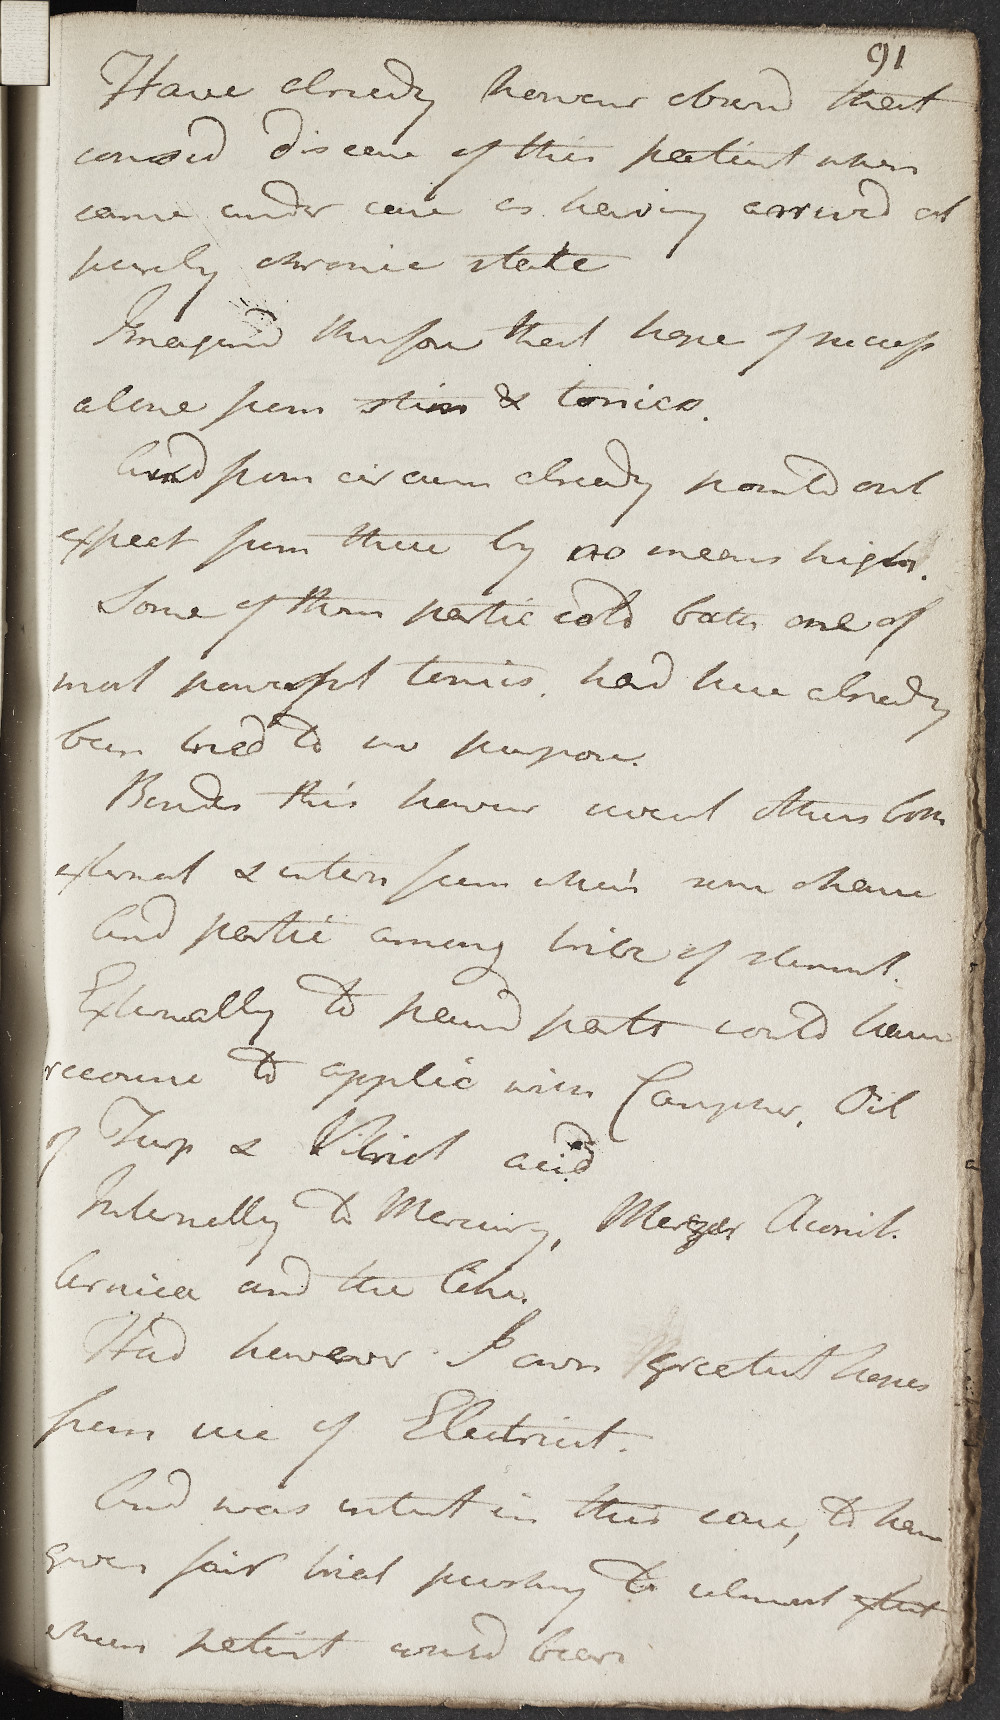 91
Have already however observd that
consid disease of this patient when
came under care as having arrived at
purely chronic state
Imagind therefore that hope of success
alone from stim & tonics.
And from circum already pointd out
expect from these by no means high.
Some of them partic cold bath one of
most powerful tonics. had here already
been tried to no purpose.
Besides this however several others both
external & intern from which some chance
And partic among tribe of stimul.
Externally to paind parts could have
recourse to applic with Camphor, Oil
of Turp & Vitriol acid
Internally to Mercury, Mezer Aconit.
Arnica and the like.
Had however I own greatest hopes
from use of Electricit.
And was intent in this case, to have
given fair trial pushing to utmost extent
which patient would bear